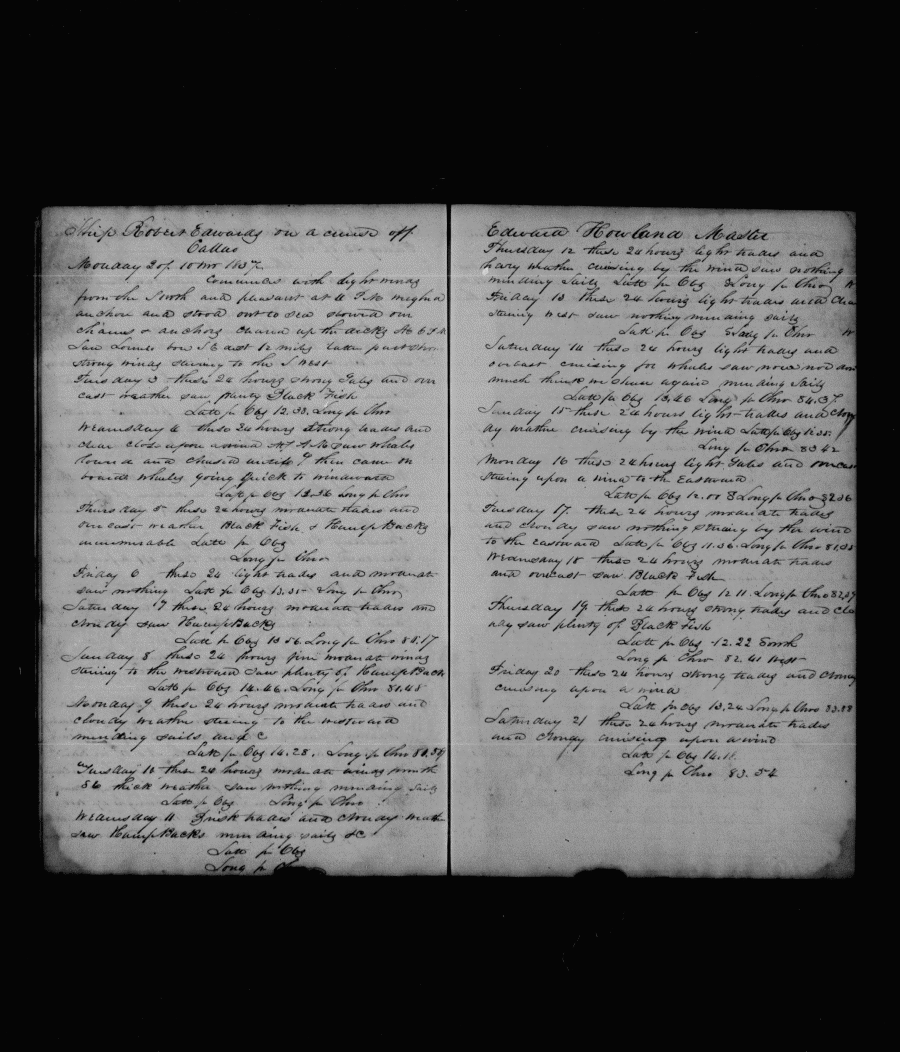 Ship Robert Edwards on a cruise off
Callao
Monday 2 of 10 mo 1837
Commences with light winds
from the South and pleasant at 4 P M weighed
anchor and stood out to sea stowed our
chains & anchors cleard up the decks At 6 P M
San Lorenzo bore S E dist 12 miles latter part
strong winds steering to the S West
Tuesday 3 these 24 hours strong Gales and over
cast weather saw plenty Black Fish
Latt pr Obs 12.38. Long pr Chro
Wednesday 4 these 24 hours strong trades and
clear close upon a wind At 7 A M saw whales
lowered and chased untill 9 then came on
board whales going quick to windward
Latt pr Obs 12.36 Long pr Chro
Thursday 5 these 24 hours moderate trades and
overcast weather Black Fish & HumpBacks
innumerable Latt pr Obs
Long pr Chro
Friday 6 these 24 light trades and moderate
saw nothing Latt pr Obs 13.35 Long pr Chro
Saturday 7 these 24 hours moderate trades and
cloudy saw HumpBacks
Latt pr Obs 13 56 Long pr Chro 80.17
Sunday 8 these 24 hours fine moderate winds
steering to the westward saw plenty of HumpBacks
Latt pr Obs 14.46. Long pr Chro 80.48
Monday 9 these 24 hours moderate trades and
cloudy weather steering to the westward
mending sails and C
Latt pr Obs 14.28. Long pr Chro
Tuesday 10 these 24 hours moderate winds from the
SE thick weather saw nothing mending sails
Latt pr Obs Long pr Chro
Wednesday 11 Brisk trades and cloudy weather
saw HumpBacks mending sails &C
Latt pr Obs
Long pr Chro
Edward Howland Master
Thursday 12 these 24 hours light trades and
hazy weather cruising by the wind saw nothing
mending sails Latt pr Obs S Long pr Chro W
Friday 13 these 24 hours light trades and clear
steering West saw nothing mending sails
Latt pr Obs S Long pr Chro W
Saturday 14 these 24 hours light trades and
overcast cruising for whales saw none nor dont
much think we shall again mending sails
Latt pr Obs 13.46 Long pr Chro 84.37
Sunday 15 these 24 hours light trades and cloud
dy weather cruising by the wind Latt pr Obs
Long pr Chro 83 42
Monday 16 these 24 hours light Gales and overcast
steering upon a wind to the Eastward
Latt pr Obs 12.00 S Long pr Chro 82 36
Tuesday 17 these 24 hours moderate trades
and cloudy saw nothing steering by the wind
to the eastward Latt pr Obs 11.36. Long pr Chro
Wednesday 18 these 24 hours moderate trades
and overcast saw Black Fish
Latt pr Obs 12 11. Long pr Chro
Thursday 19 these 24 hours strong trades and clou
dy saw plenty of Black Fish
Latt pr Obs 12.22 South
Long pr Chro 82.41 West
Friday 20 these 24 hours strong trades and cloudy
cruising upon a wind
Latt pr Obs 13.24 Long pr Chro 83.88
Saturday 21 these 24 hours moderate trades
and cloudy cruising upon a wind
Latt pr Obs 14.18.
Long pr Chro 83.54